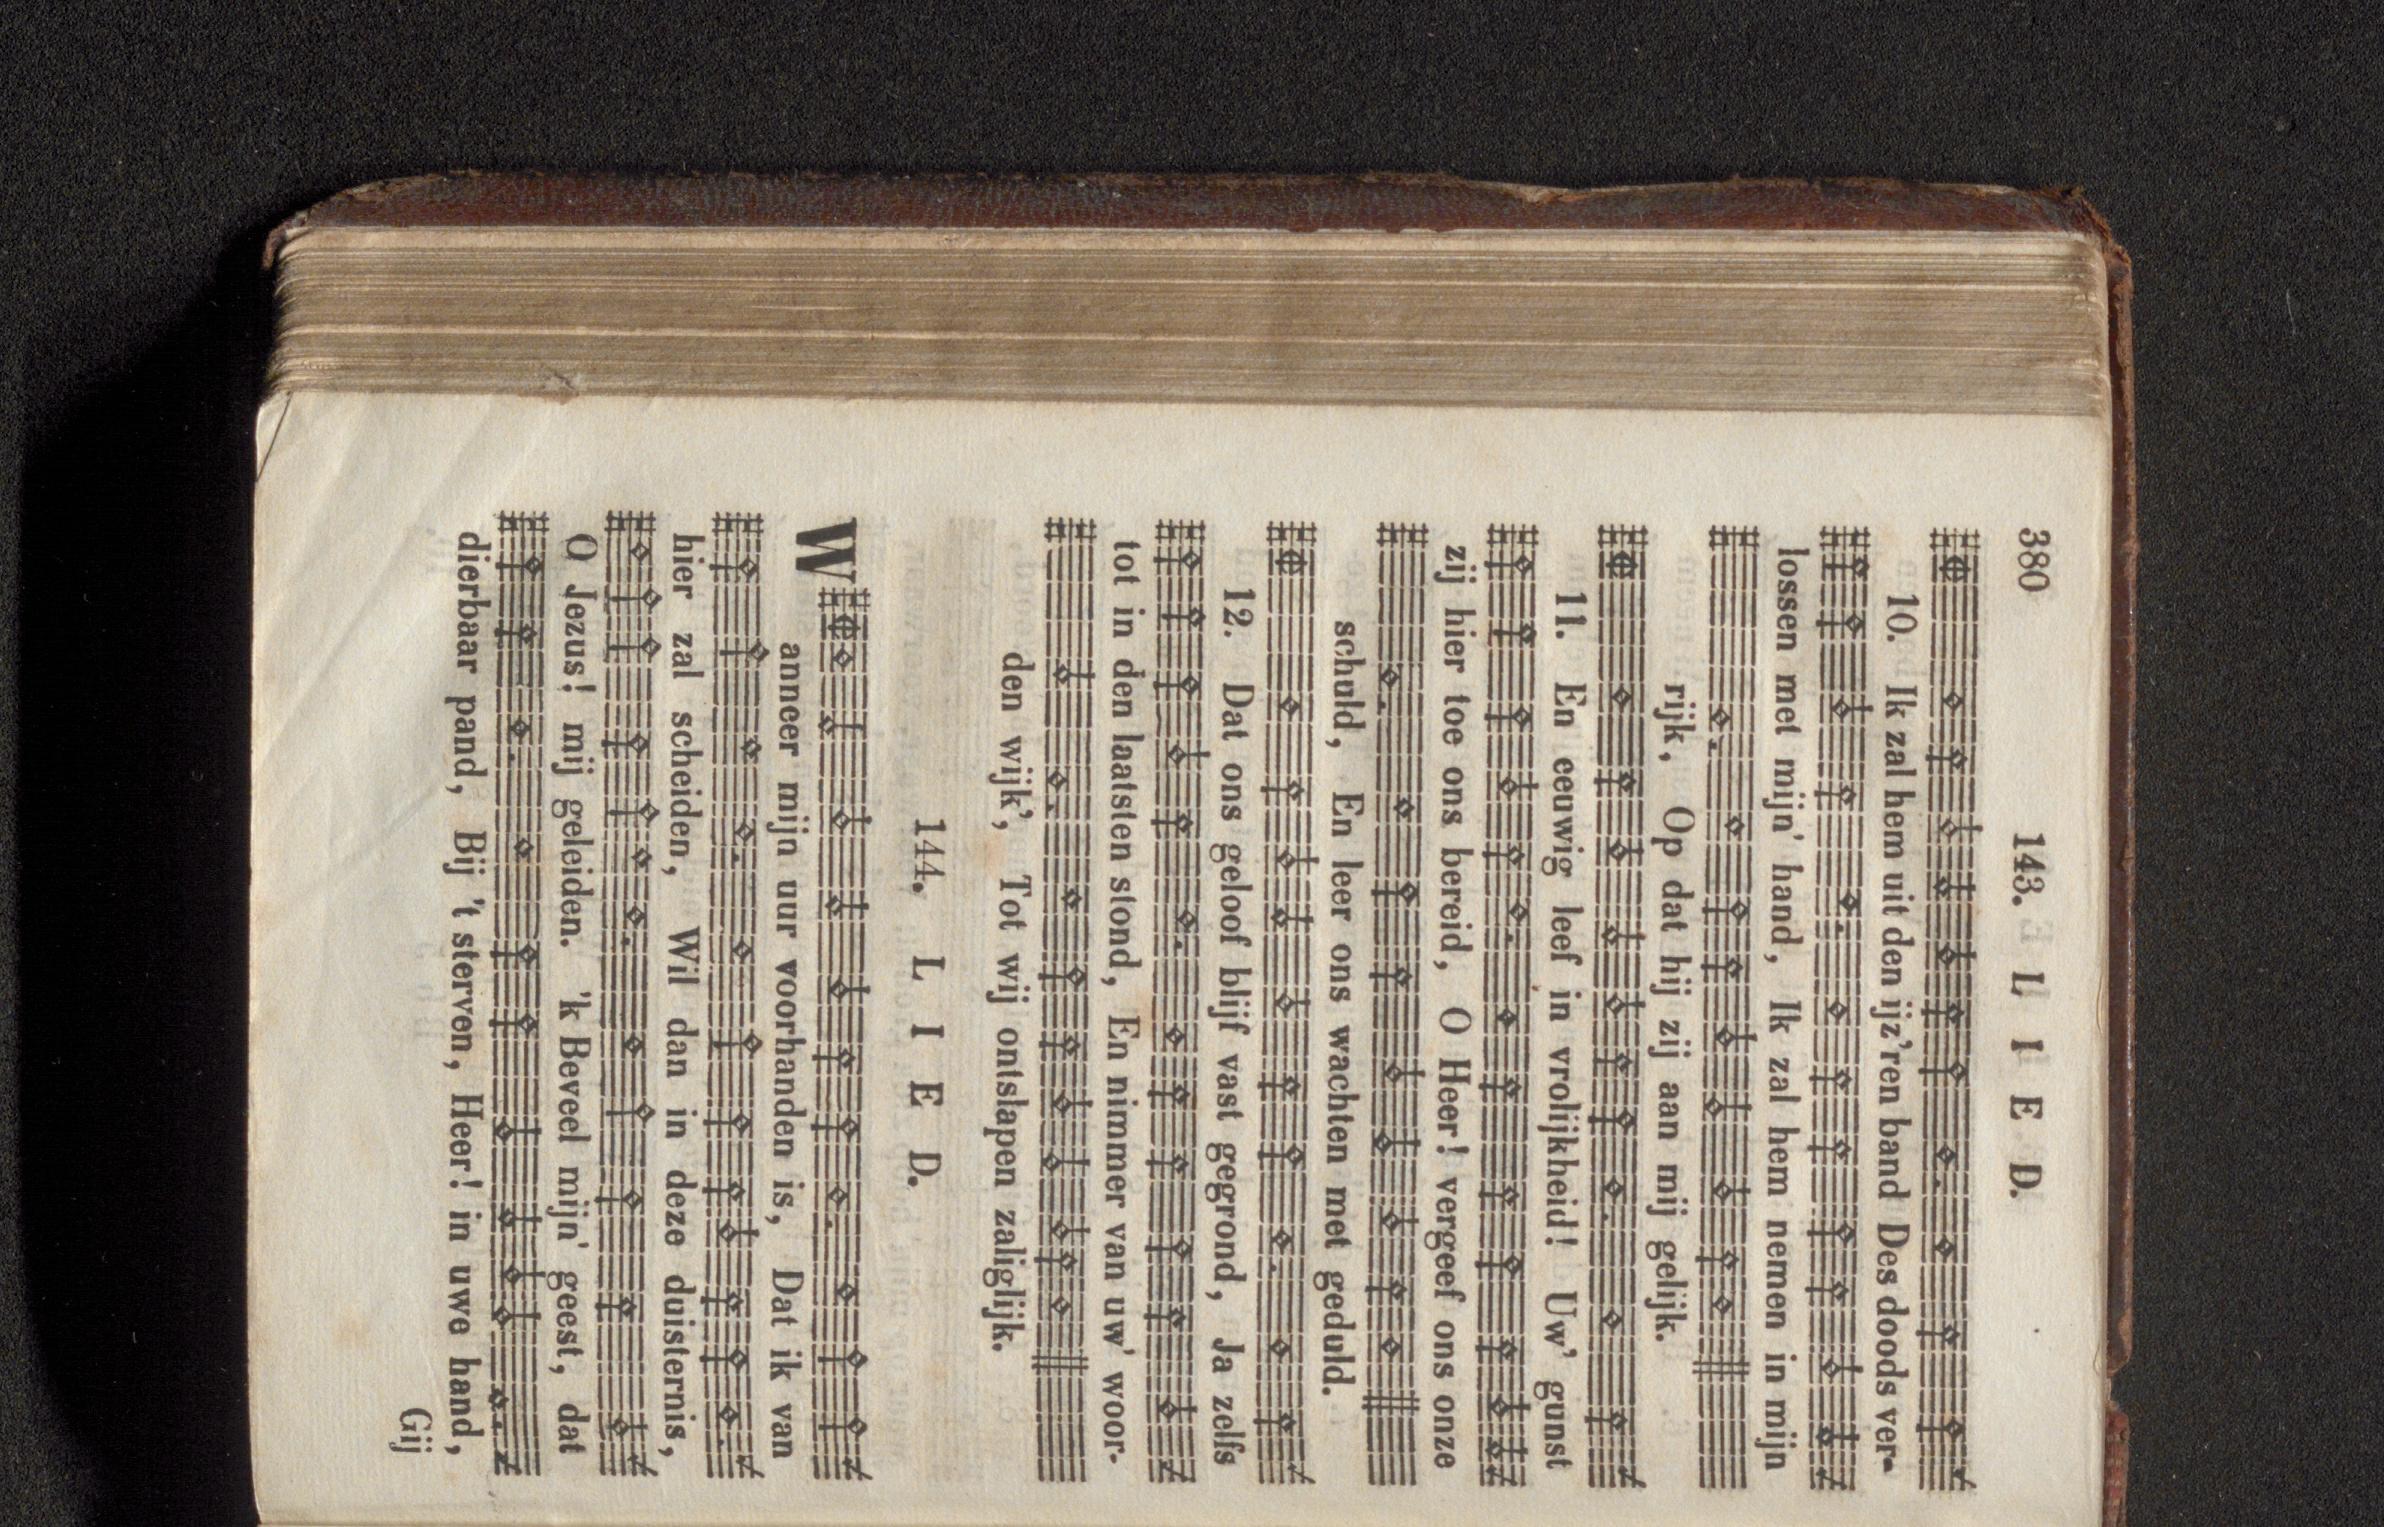 380 143. L I E D.
10. Ik zal hem uit den ijz'ren band Des doods ver-
lossen met mijn' hand, Ik zal hem nemen in mijn
rijk, Op dat hij zij aan mij gelijk.
11. En eeuwig leef in vrolijkheid! Uw' gunst
zij hier toe ons bereid, O Heer! vergeef ons onze
schuld, En leer ons wachten met geduld.
12. Dat ons geloof blijf vast gegrond, Ja zelfs
tot in den laatsten stond, En nimmer van uw' woor-
den wijk', Tot wij ontslapen zaliglijk.
144. L I E D.
Wanneer mijn uur voorhanden is, Dat ik van
hier zal scheiden, Wil dan in deze duisternis,
O Jezus! mij geleiden. 'k Beveel mijn' geest, dat
dierbaar pand, Bij 't sterven, Heer! in uwe hand,
Gij